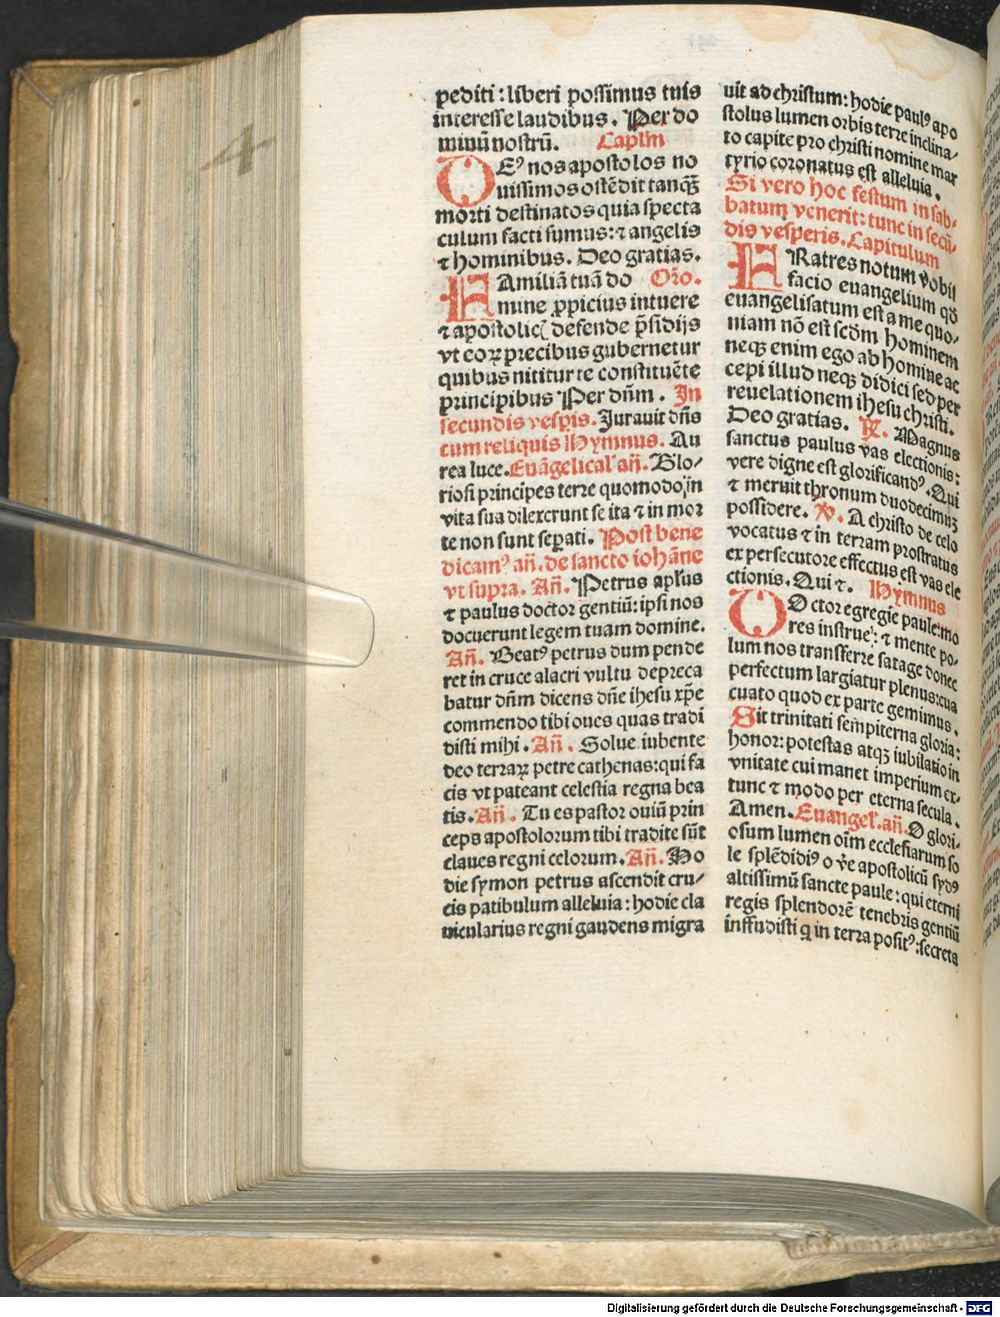 pediti : liberi possimus tuis
interesse laudibus. Per do
minū nostrū. Capl'm
DEꝰ nos apostolos no
uissimos ostēdit tanqꝫ
morti destinatos quia specta
culum facti sumus: ⁊ angelis
⁊ hominibus. Deo gratias.
FAmiliā tuā do Orō.
mine ꝓpicius intuere
⁊ apostolicꝭ defende p̄sidijs
vt eoꝝ precibus gubernetur
quibus nititur te constituēte
principibus Per dn̄m. In
secundis vespis. Jurauit dn̄s
cum reliquis Hymnus. Au
rea luce. Euāgelical' an̄. Glo/
riosi principes terre quomodo in
vita sua dilexerunt se ita ⁊ in mor
te non sunt sepati. Post bene
dicamꝰ an̄. de sancto iohāne
vt supra. An̄. Petrus apl'us
⁊ paulus doctor gentiū: ipsi nos
docuerunt legem tuam domine.
An̄. Beatꝰ petrus dum pende
ret in cruce alacri vultu depreca
batur dn̄m dicens dn̄e ihesu xp̄e
commendo tibi oues quas tradi
disti mihi. An̄. Solue iubente
deo terraꝝ petre cathenas: qui fa
cis vt pateant celestia regna bea
tis. An̄. Tu es pastor ouiū prin
ceps apostolorum tibi tradite sūt
claues regni celorum. An̄. Ho
die symon petrus ascendit cru/
cis patibulum alleluia: hodie cla
uicularius regni gaudens migra
uit ad christum: hodie paulꝰ apo
stolus lumen orbis terre inclina/
to capite pro christi nomine mar
tyrio coronatus est alleluia.
Si vero hoc festum in sab-
batum venerit: tunc in secū-
dis vesperis. Capitulum
FRatres notum vobis
facio euangelium qd̄
euangelisatum est a me quo-
niam nō est scd̄m hominem
neqꝫ enim ego ab homine ac
cepi illud neqꝫ didici sed per
reuelationem ihesu christi.
Deo gratias. ℟. Magnus
sanctus paulus vas electionis:
vere digne est glorificandꝰ. Qui
⁊ meruit thronum duodecimuꝫ
possidere. ℣. A christo de celo
vocatus ⁊ in terram prostratus
ex persecutore effectus est vas ele
ctionis. Qui ⁊. Hymnus
DOctor egregie paule: mo
res instrue: ⁊ mente po-
lum nos transferre satage donec
perfectum largiatur plenus: eua
cuato quod ex parte gemimus.
Sit trinitati sempiterna gloria:
honor: potestas atqꝫ iubilatio in
vnitate cui manet imperium ex-
tunc ⁊ modo per eterna secula.
Amen. Euangel'. an̄. O glori-
osum lumen oīm ecclesiarum so
le splēdidiꝰ o v̄e apostolicū sydꝰ
altissimū sancte paule: qui eterni
regis splendorē tenebris gentiū
infudisti q in terra positꝰ: secreta
4
Digitalisierung gefördert durch die Deutsche Forschungsgemeinschaft - DFG